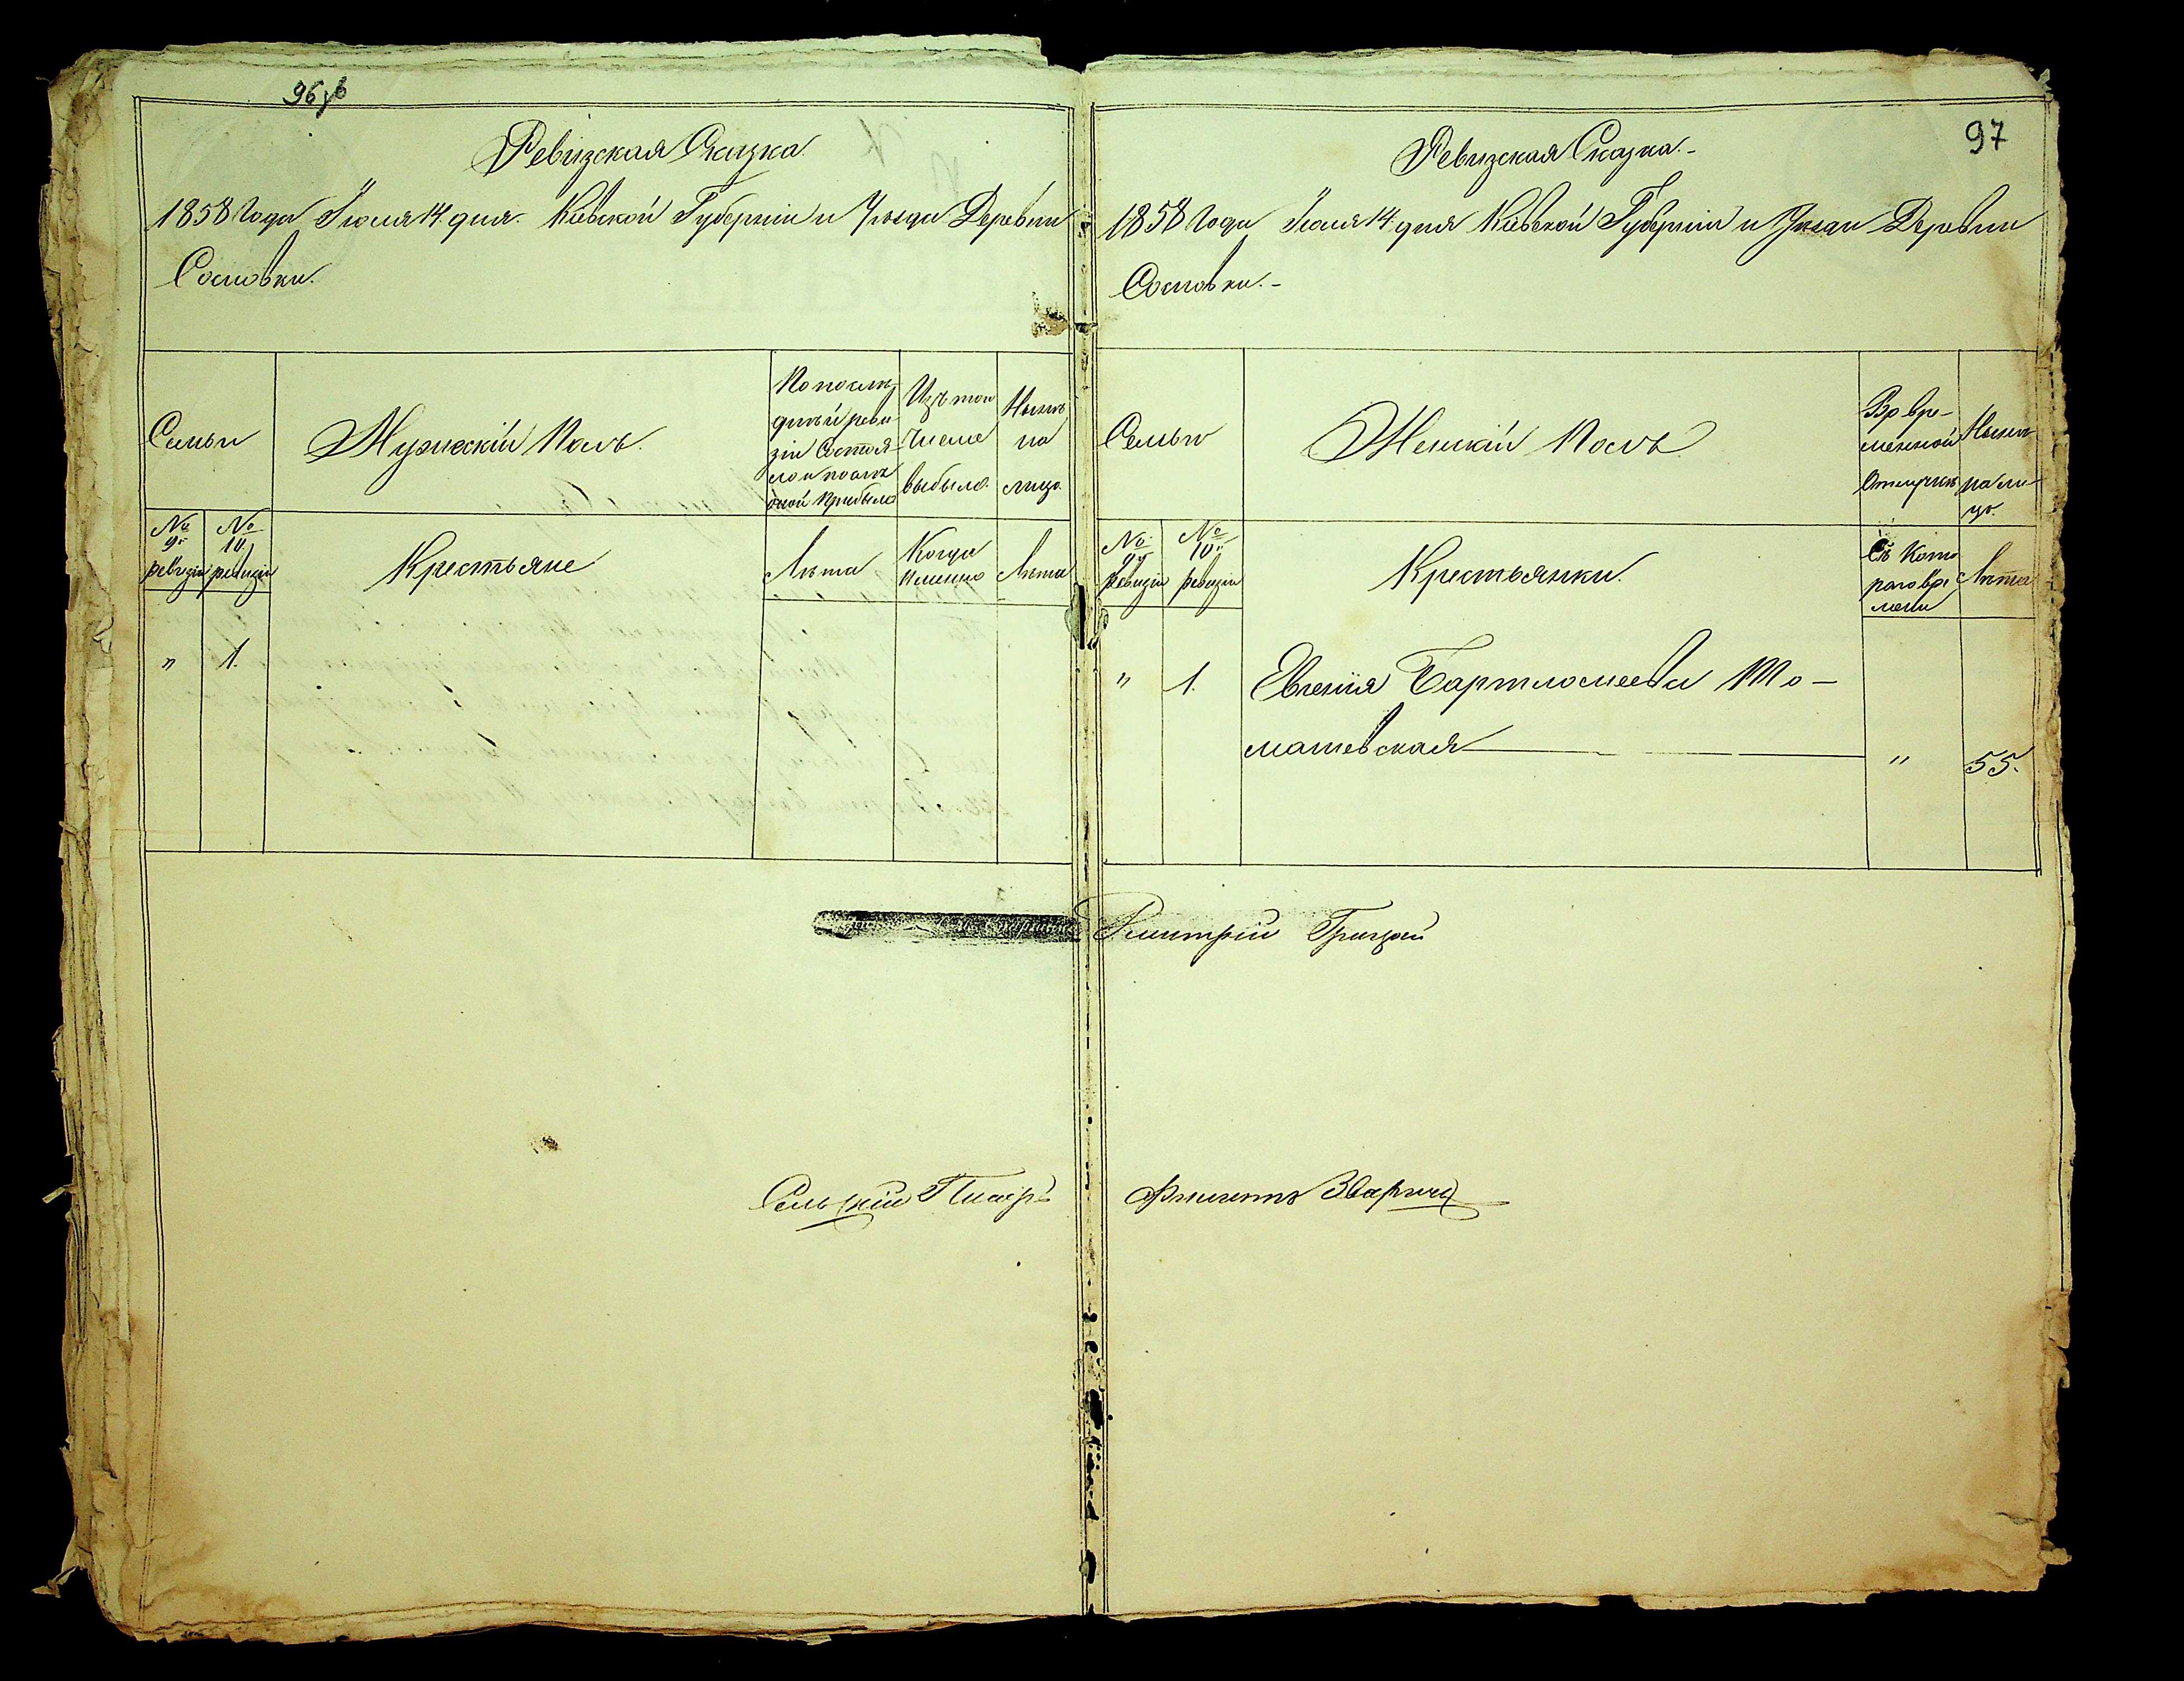 96 об
Ревизская Сказка
1858 Года Іюля 14. дня. Кіевской Губерніи и Уѣзда Деревни
Сосновки.
Семьи
Мужескій Полъ.
По послѣ-
дней реви
зіи Состоя-
ло и послѣ
оной прибыло
Изъ того
числа
выбыло.
Нынѣ
на
лицо.
№
9й
ревизіи
№
10й
ревизіи
Крестьяне
Лѣта
Когда
Именно
Лѣта
"
1.
97
Ревизская Сказка.-
1858 Года Іюля 14 дня Кіевской Губерніи и Уѣзда Деревни
Сосновки.-
Семьи
Женскій Полъ
Во вре-
менной
Отлучкѣ
Нынѣ
на ли
цо.
№
9й
Ревизіи
№
10й
ревизіи
Крестьянки.
Съ Кото
раго вре
мени
Лѣта
"
1.
Евгенія Бартломеева То-
машевская
"
55.
Дмитрій Грицай
Сельскій Писарь Викентъ Зваричъ